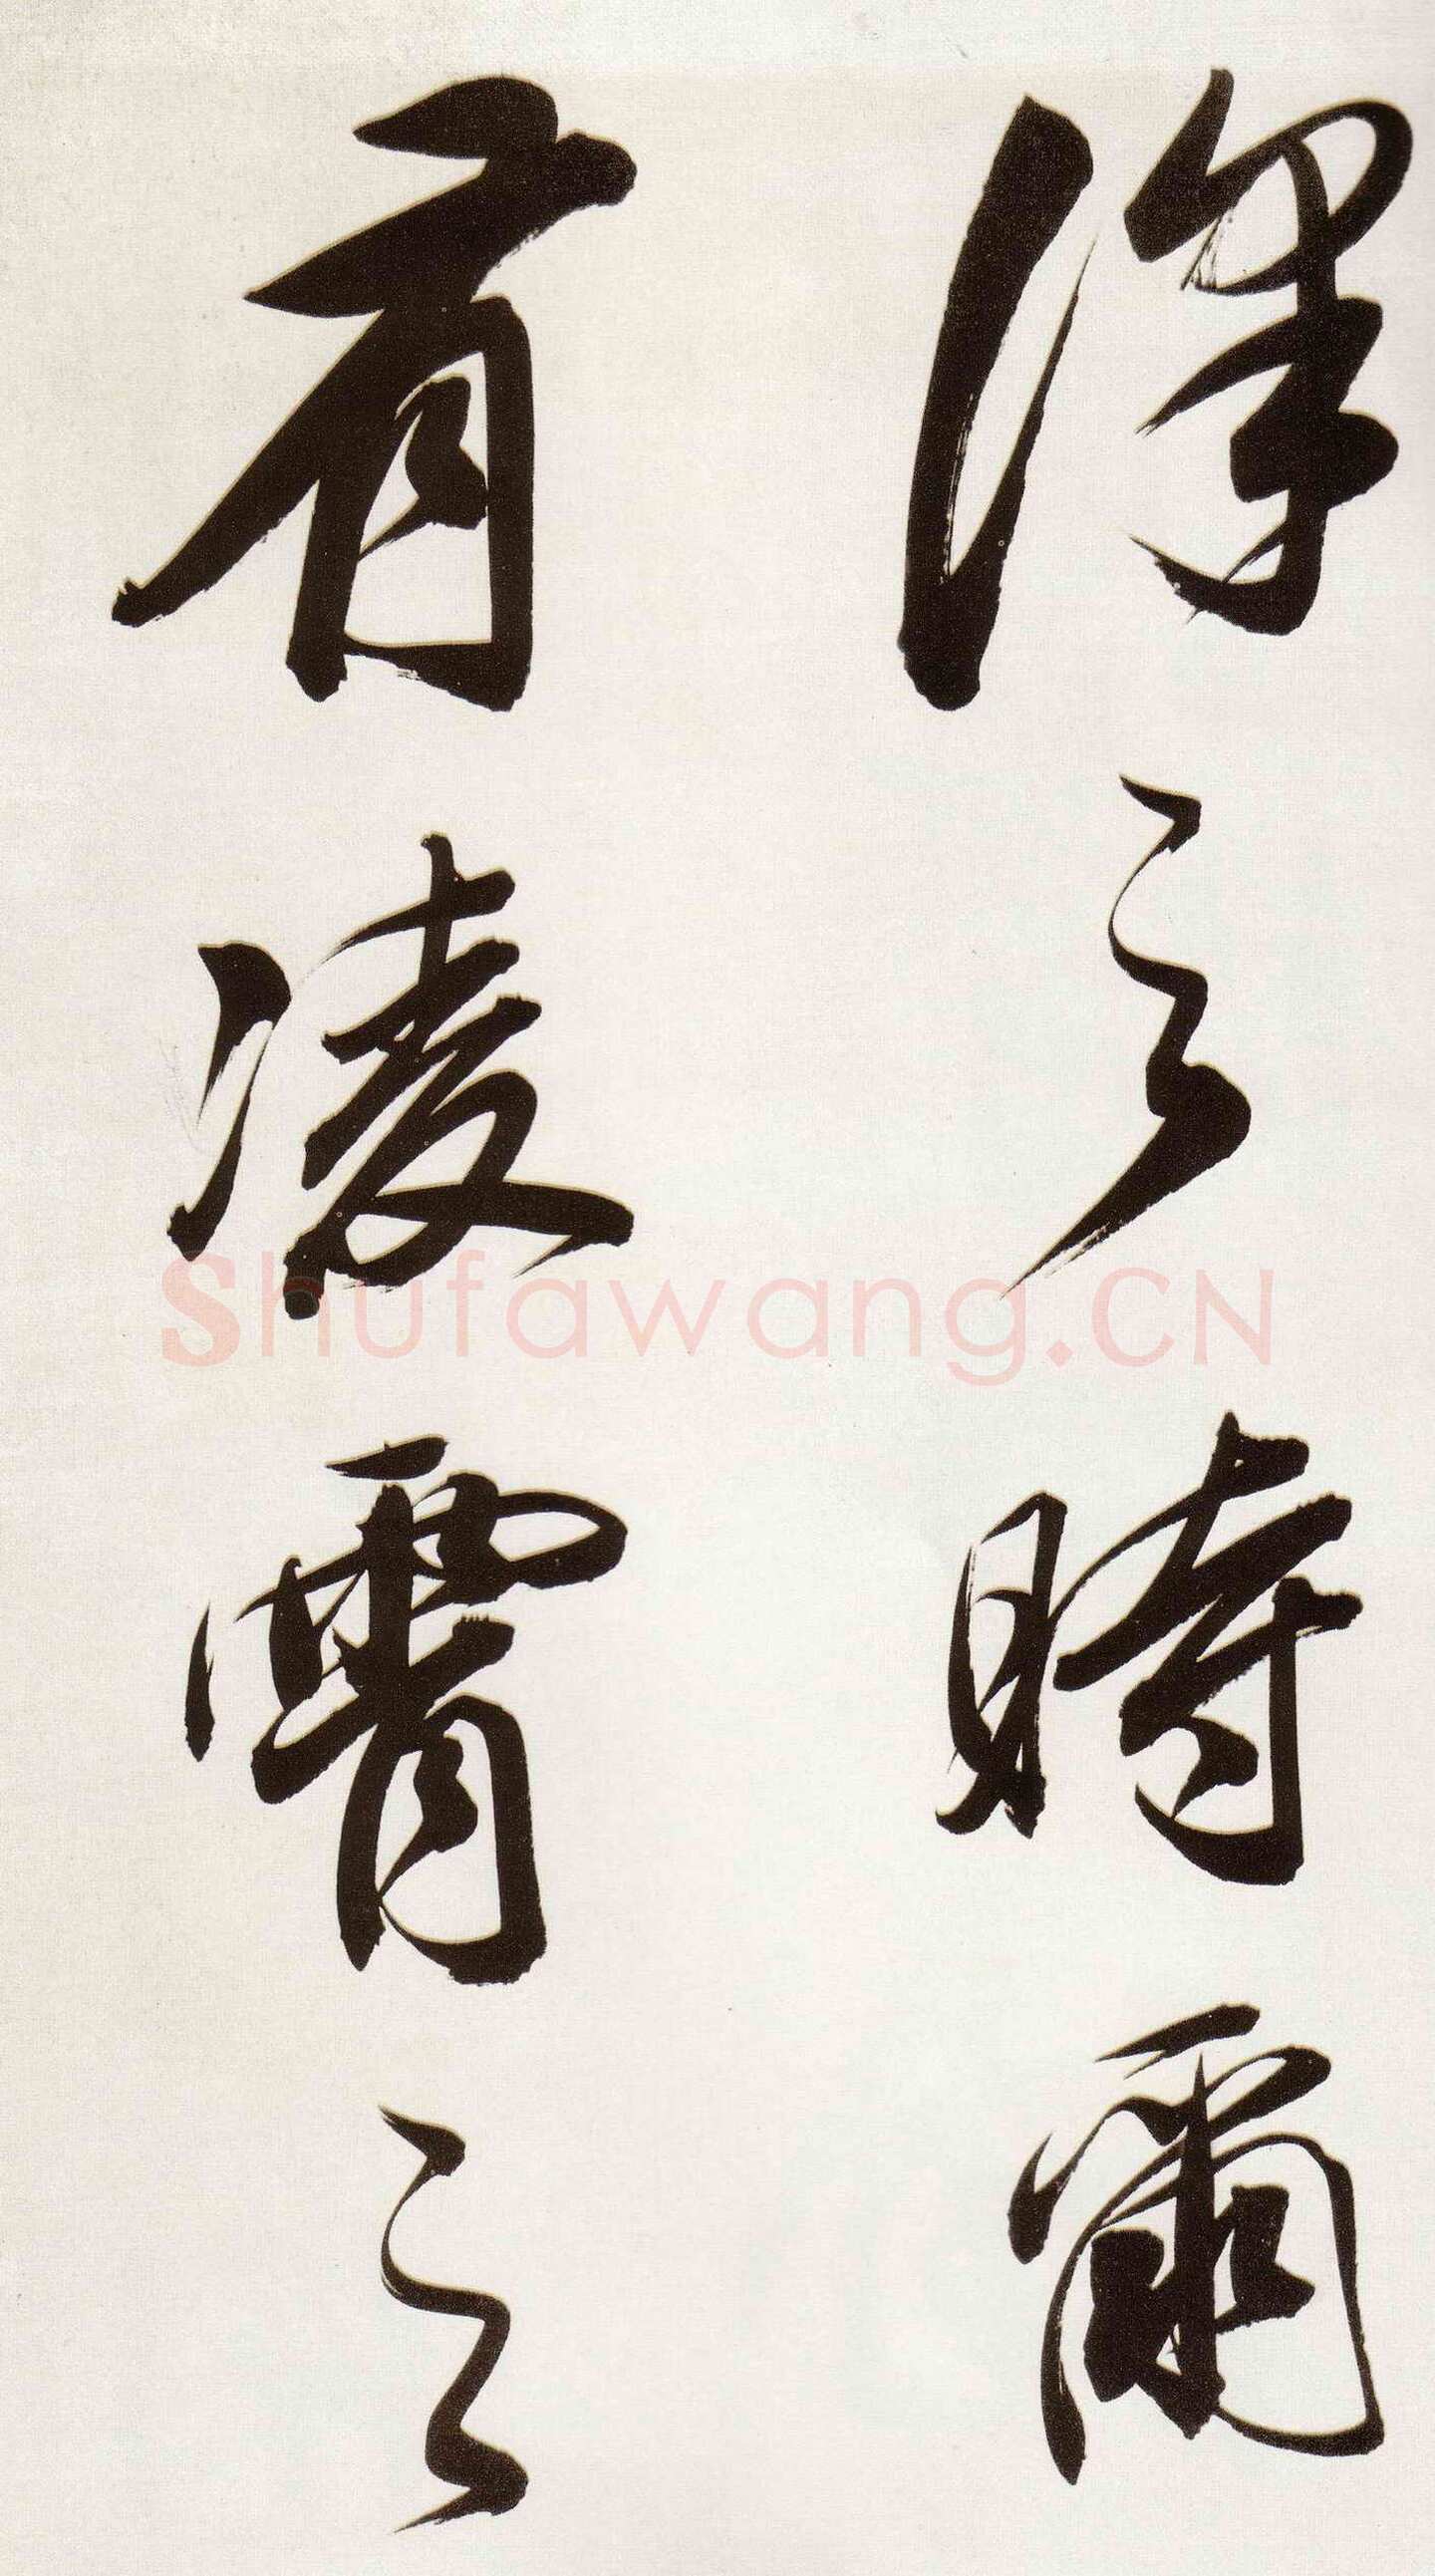 澤之時爾
有凌霄之
Shufawang.CN